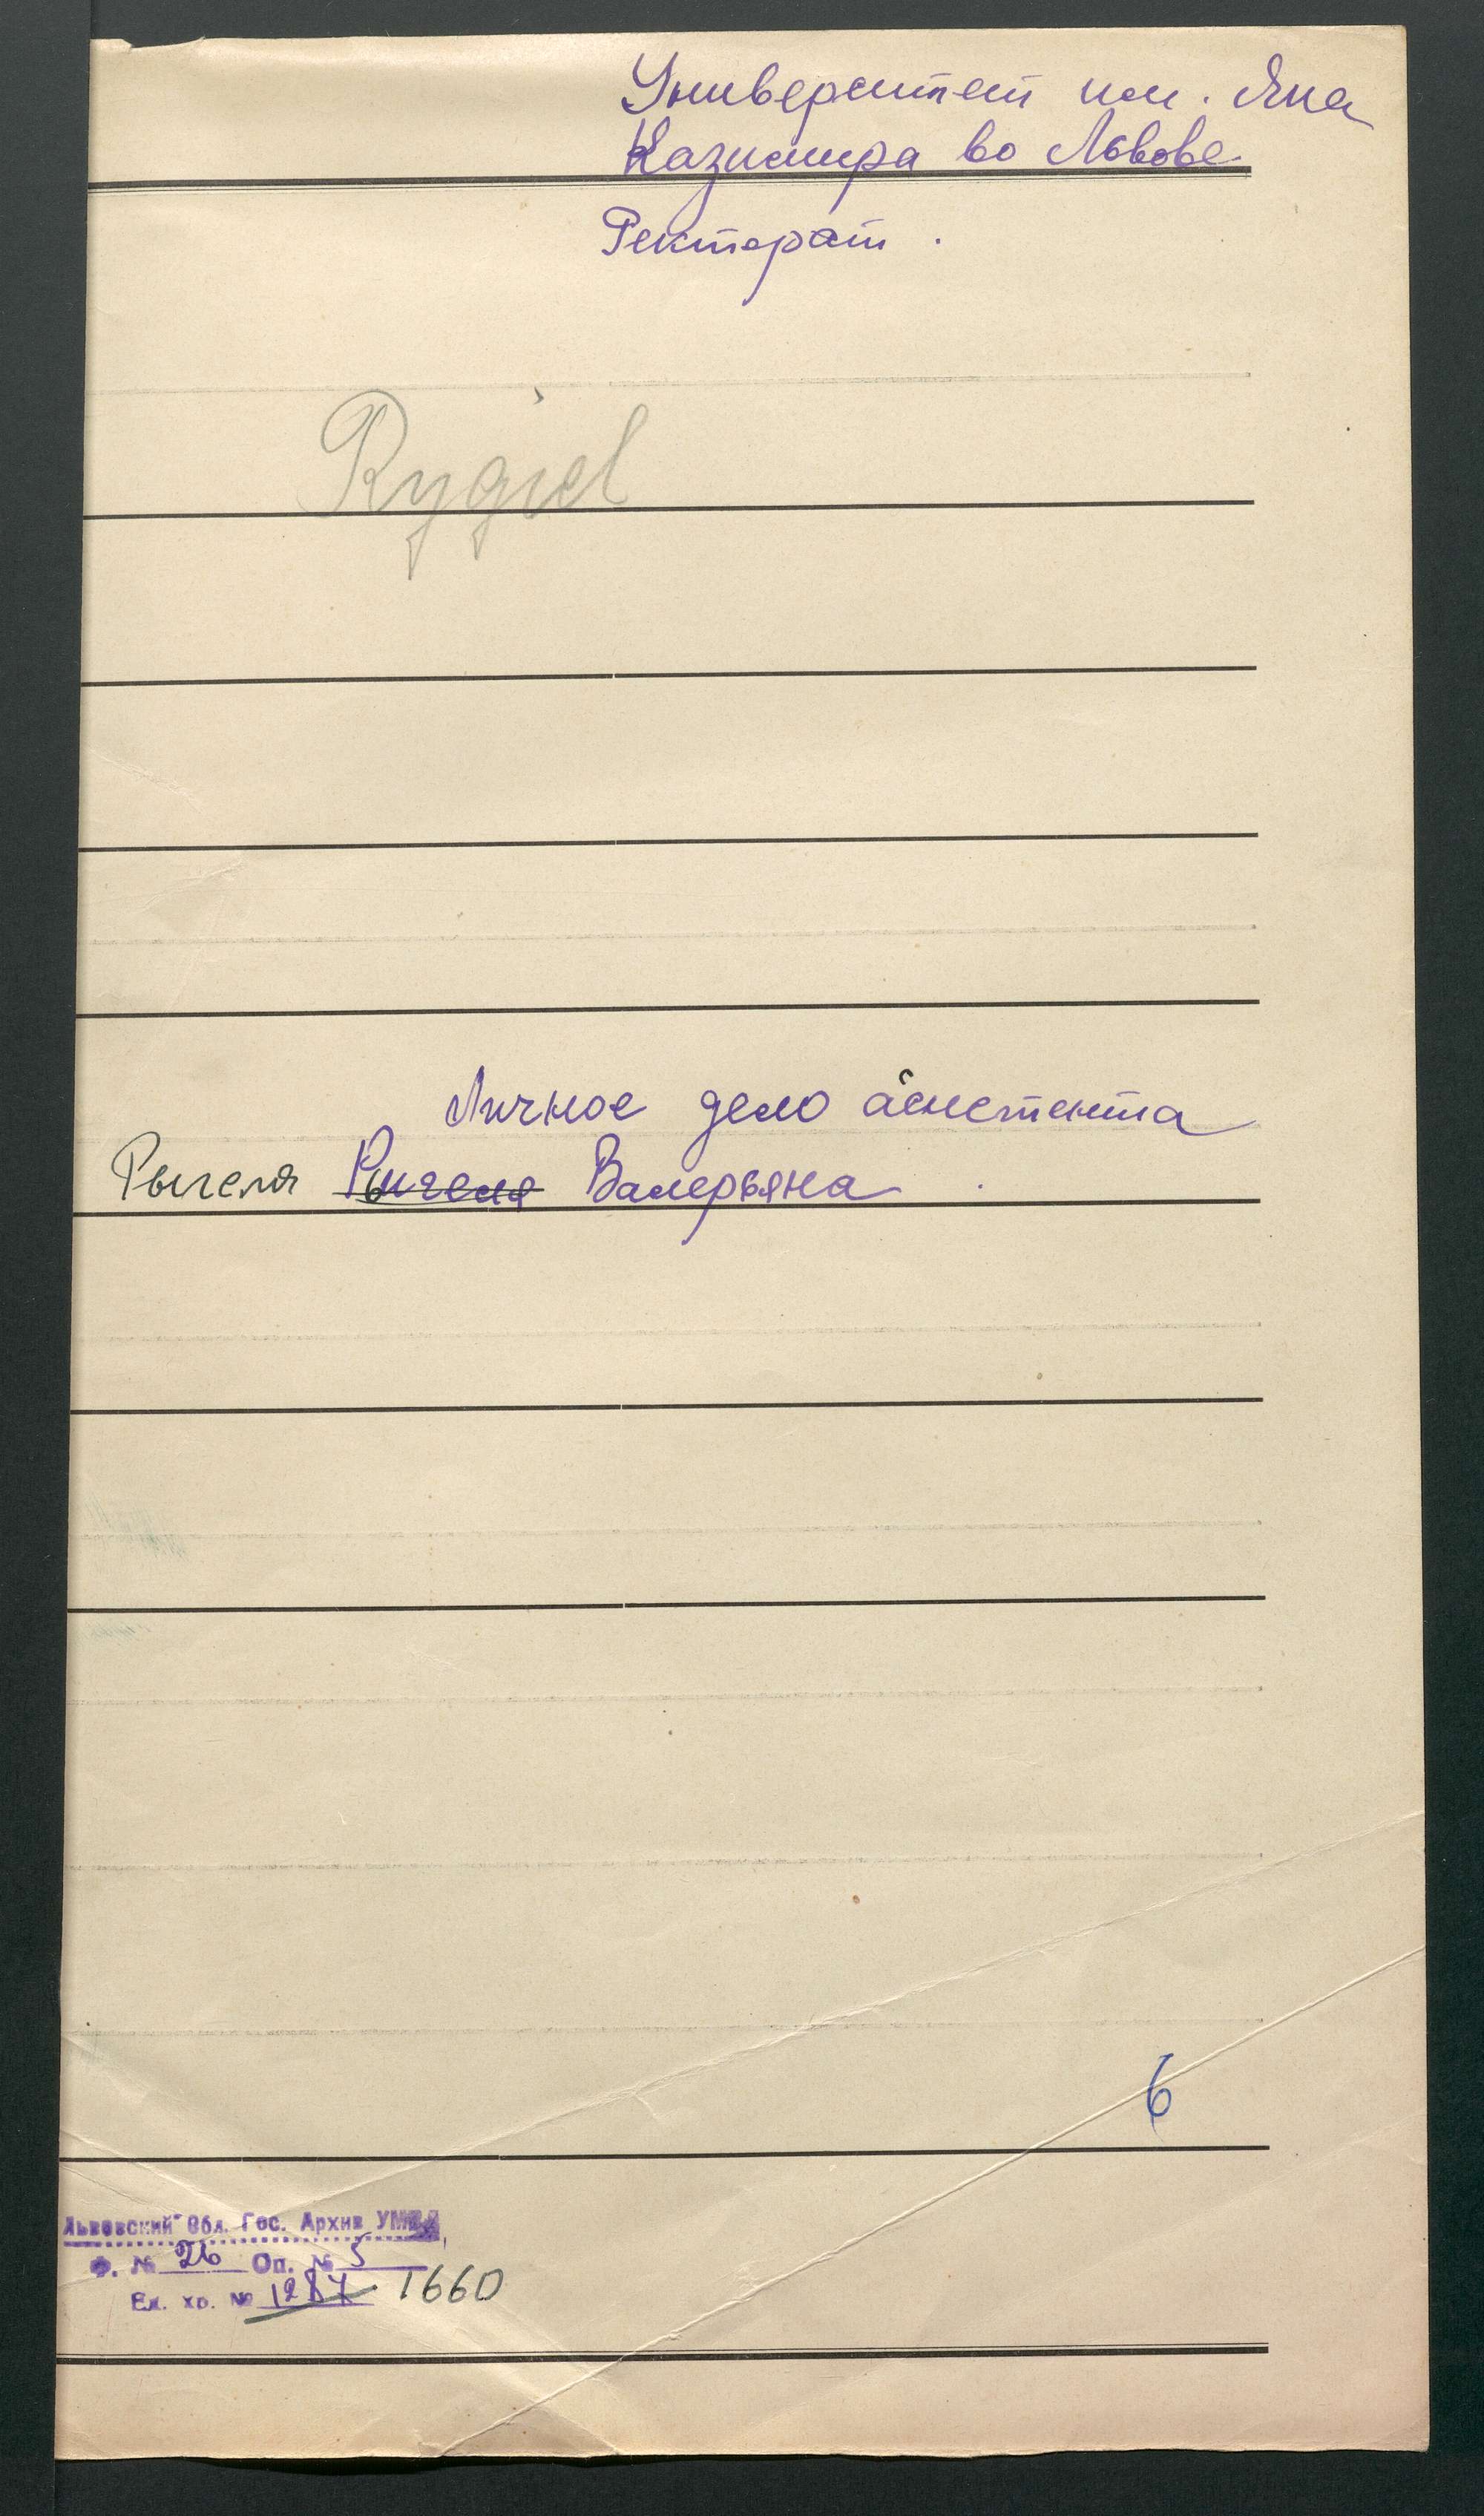 Университет им. Яна
Казимира во Львове
Ректорат.
Rygiel
Личное дело асистента
Рыгеля Рыгеля Валерьяна.
6
Львовский Обл. Гос. Архив
Ф. № 26 Оп. № 5
Ед. хр. № 1287 1660